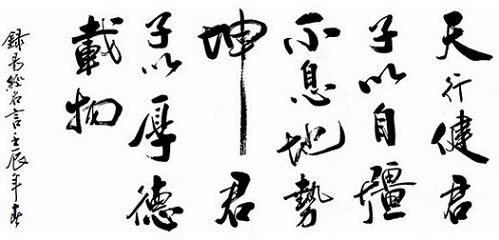 天行健君
子以自彊
不息地勢
坤君
子以厚德
載物
録易經名言壬辰年春